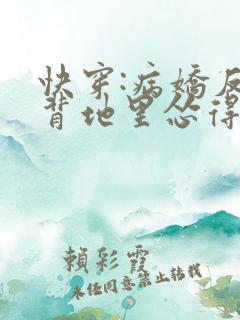 快穿:病嬌反
背地里怂得
賴彩霞
未经同意禁止转载